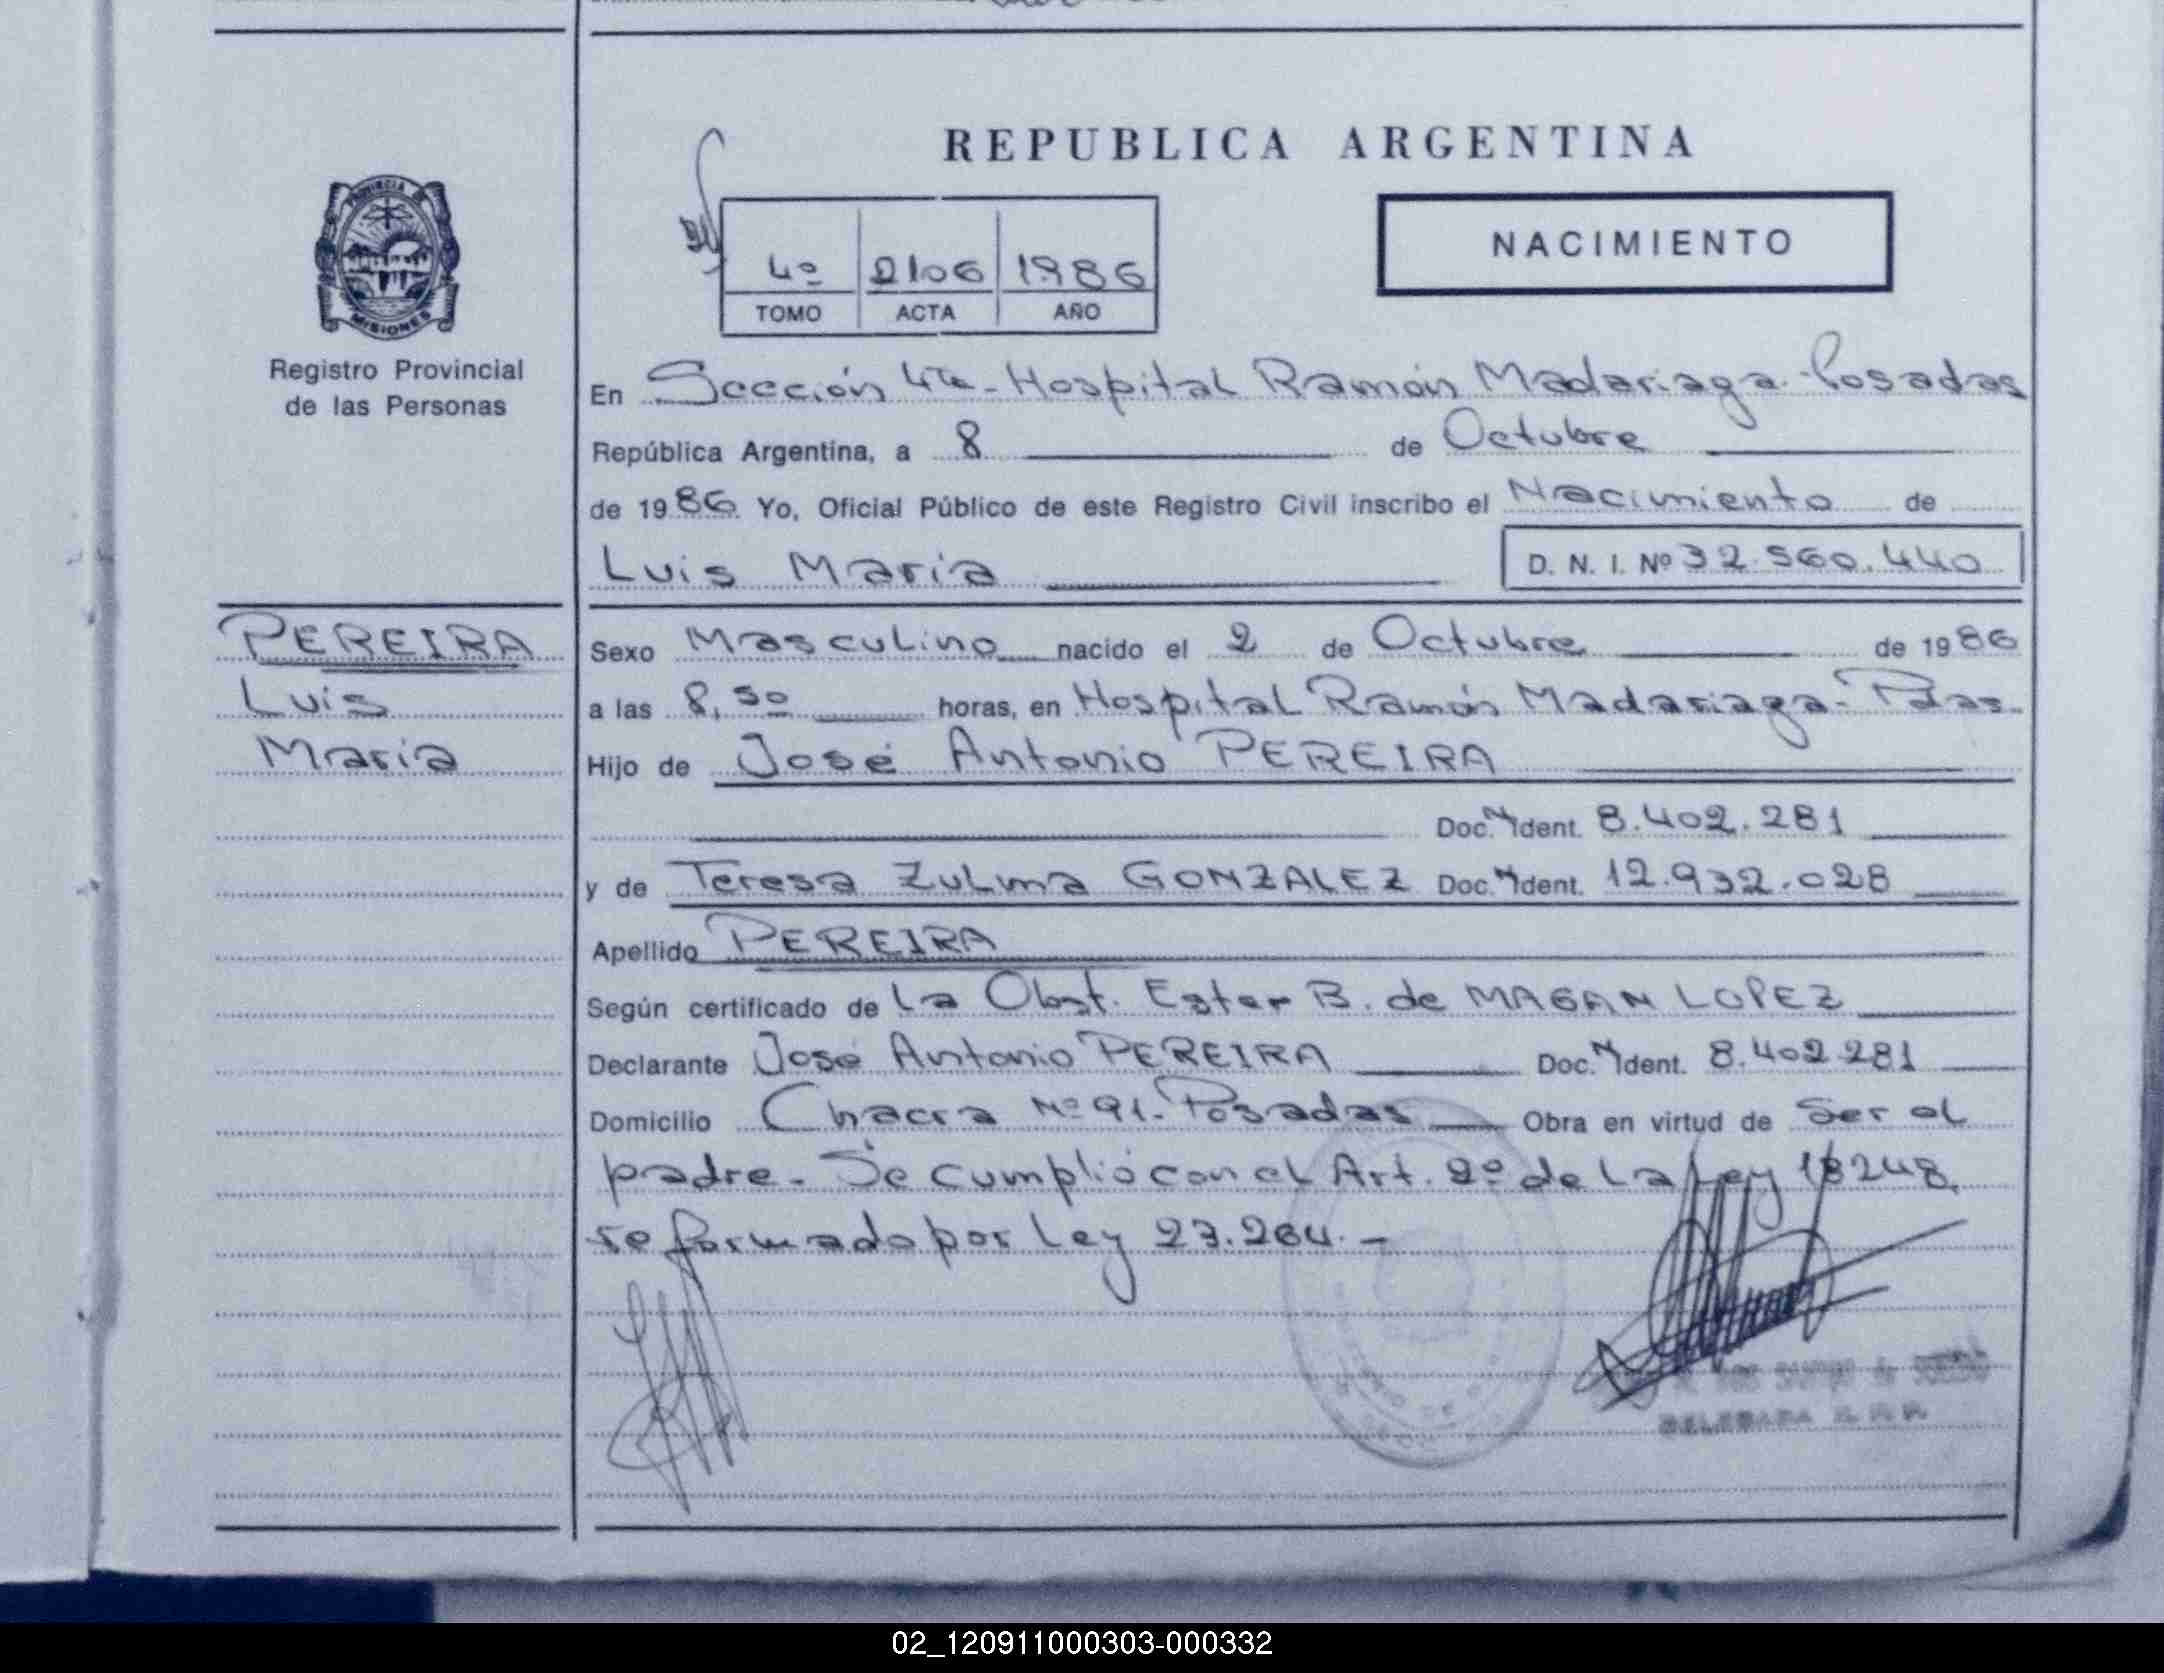 REPUBLICA ARGENTINA
PROVINCIA DE
MISIONES
Registro Provincial
de las Personas
4º 2106 1986
TOMO ACTA AÑO
NACIMIENTO
En Sección 4ta - Hospital Ramón Madariaga - Posadas
República Argentina, a 8 de Octubre
de 1986 Yo, Oficial Público de este Registro Civil inscribo el Nacimiento de
Luis Maria D. N. I. Nº 32.560.440
PEREIRA
Luis
Maria
Sexo Masculino nacido el 2 de Octubre de 1986
a las 8,50 horas, en Hospital Ramón Madariaga - Pdas.
Hijo de José Antonio PEREIRA
Doc. N Ident. 8.402.281
y de Teresa Zulma GONZALEZ Doc. N Ident. 12.932.028
Apellido PEREIRA
Según certificado de La Obst. Ester B. de MAGAN LOPEZ
Declarante José Antonio PEREIRA Doc. N Ident. 8.402.281
Domicilio Chacra Nº 91 - Posadas Obra en virtud de Ser el
padre - Se cumplió con el Art. 2º de La Ley 18248,
reformado por Ley 23.264. -
DELEGADA R. P. P.
02_120911000303-000332